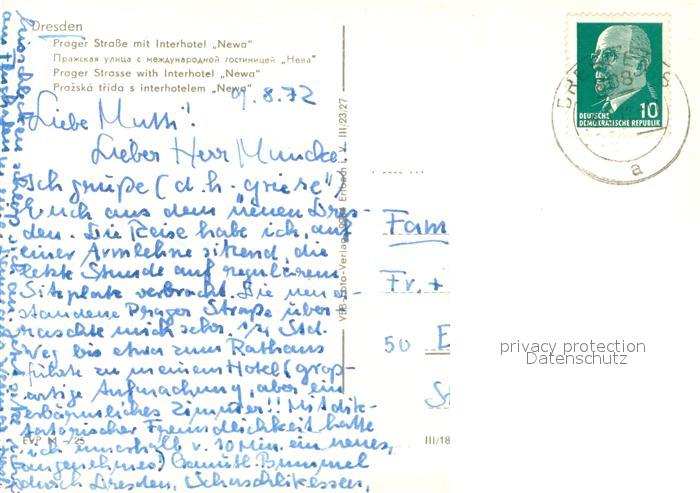 Dresden
Prager Straße mit Interhotel „Newa“
Пражская улица с международной гостиницей „Нева“
Prager Strasse with Interhotel „Newa“
Pražská třída s interhotelem „Newa“
9.8.72
Liebe Mutti!
Lieber Herr Muncke
Ich grüße (d.h. „griese“)
Euch aus dem neuen Dres-
den. Die Reise habe ich, auf
einer Armlehne sitzend, die
letzte Stunde auf regulärem
Sitzplatz verbracht. Die neuer-
standene Prager Straße über-
raschte mich sehr. 1/4 Std.
Weg bis etwa zum Rathaus
führte zu meinem Hotel (groß-
artige Aufmachung, aber ein
erbärmliches Zimmer!! Mit dik-
tatorischer Freundlichkeit hatte
ich innerhalb v. 10 Min. ein neues,
angenehmes) Bummel
durch Dresden, Schaschlikessen,
III/23/27
VEB Foto-Verlag Erlbach i. V.
EVP M -.25
III/18
DEUTSCHE
DEMOKRATISCHE REPUBLIK
10
a
Fam
Fr. +
50
privacy protection
Datenschutz